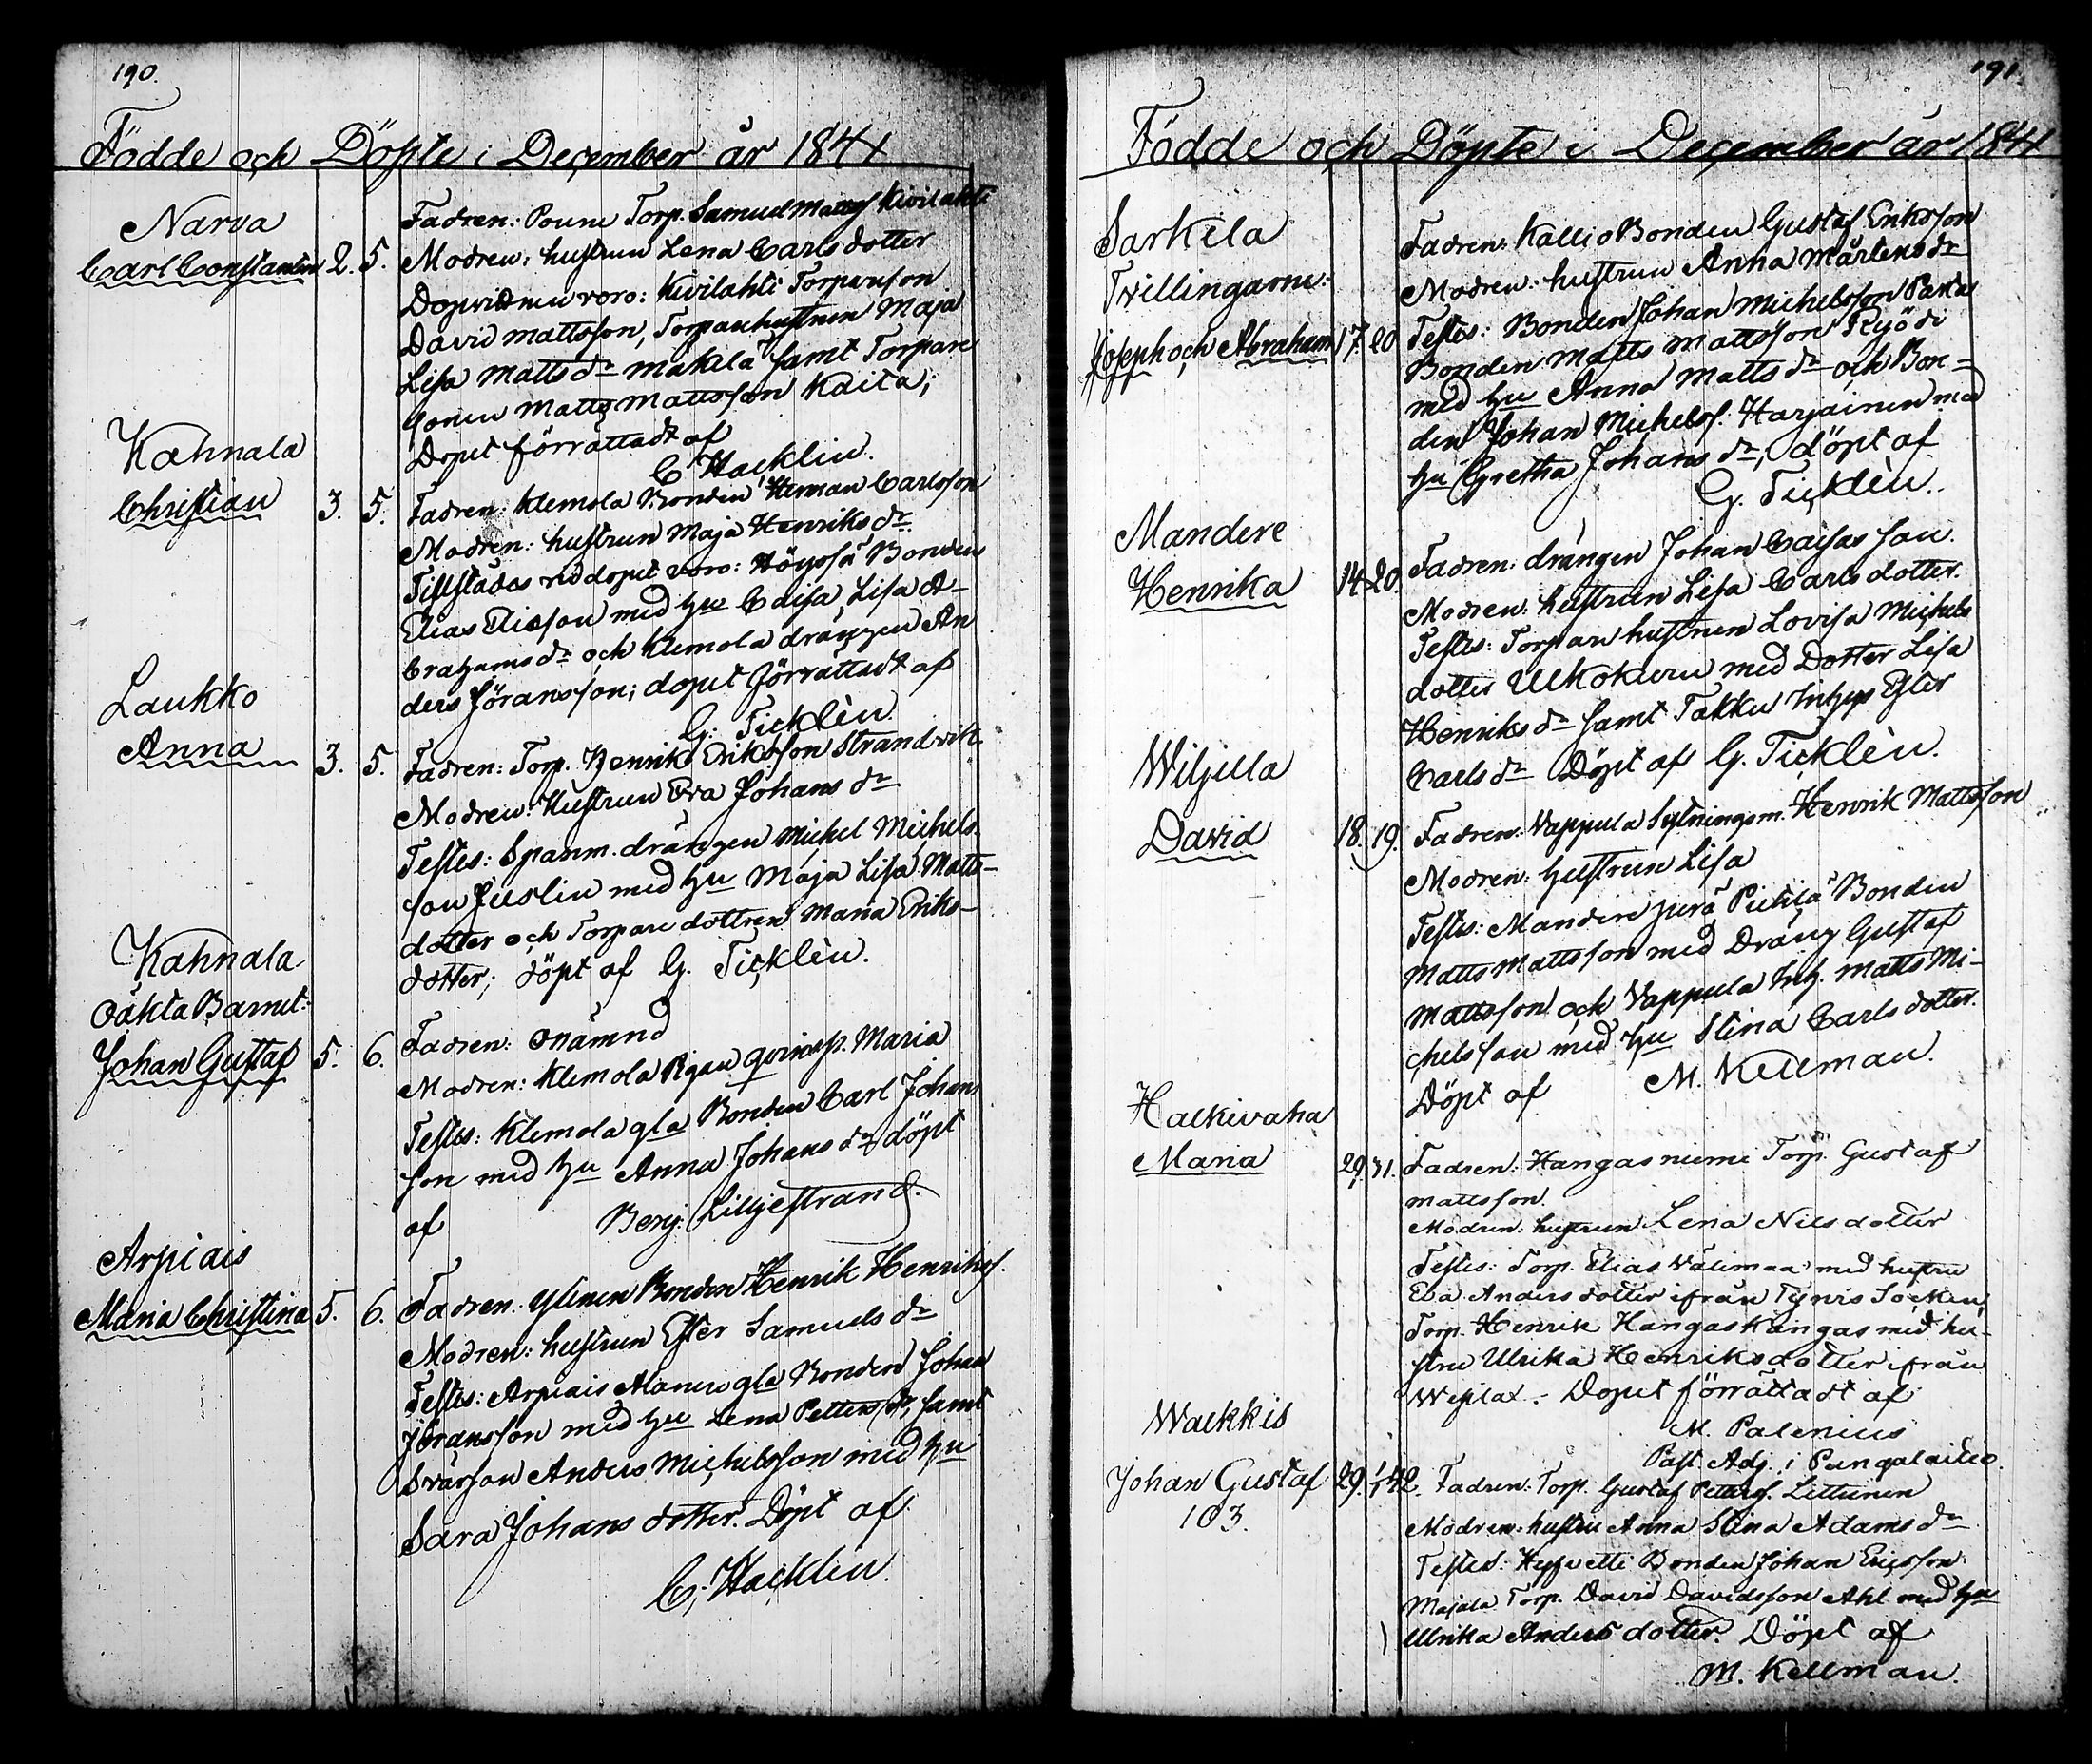 190.
Födde och Döpte i December år 1841
Narva
Carl Constantin 2. 5.
Fadren: Poune Torp. Samuel Mattsf Kivilahti
Modren: hustrun Lena Carlsdotter
Dopvitnen voro: Kivilahti Torpareson
David Mattsson, Torparehustrun Maja
Lisa Matts dr Mäkilä samt Torpare
sonen Matts Mattsson Kaita;
Doput förrättadt af
C. Hacklin.
Kahnala
Christian 3. 5.
Fadren: Klemola Bonden Herman Carlsson
Modren: hustrun Maja Henriks dr
Tillstädes vid doput voro: Höysä Bonden
Elias Eliasson med hu Caisa Lisa A-
brahams dr och Klemola drängen An
ders Jöransson; doput förrättadt af
G. Ticklèn.
Laukko
Anna 3. 5.
Fadren: Torp. Henrik Eriksson Strandvik
Modren: Hustrun Eva Johans dr
Testes: Spanm. drängen Michel Michels-
son Juslin med hu Maja Lisa Matts-
dotter och Torpare dottren Maria Eriks-
dotter; döpt af G. Ticklèn.
Kahnala
Oäkta Barnet:
Johan Gustaf 5. 6.
Fadren: Onämnd
Modren: Klemola Pigan qvinsp. Maria
Testes: Klemola gla Bonden Carl Johans
son med hu Anna Johans dr döpt
af Benj. Liljestrand.
Arpiais
Maria Christina 5. 6.
Fadren: Ylinen Bonden Henrik Henriksf.
Modren: hustrun Ester Samuels dr
Testes: Arpiais Manen gla Bonden Johan
Jöransson med hu Lena Petters dr, samt
Svärson Anders Michelsson med hu
Sara Johans dotter. Döpt af
C. Hacklin.
191.
Födde och Döpte i December år 1841
Sarkila
Tvillingarne:
Joseph och Abraham 17. 20
Fadren: Kallio Bonden Gustaf Eriksson
Modren: hustrun Anna Mårtens dr
Testes: Bonden Johan Michelsson Parta
Bonden Matts Mattsson Ryödi
med hu Anna Matts dr och Bon-
den Johan Michelsf. Harjainen med
hu Gretha Johans dr; döpt af
G. Ticklèn.
Mandere
Henrika 14 20.
Fadren: drängen Johan Caisas son.
Modren: hustrun Lisa Carlsdotter.
Testes: Torpare hustrun Lovisa Michels
dotter Ulkokuru med Dotter Lisa
Henriks dr samt Takku Inhys Ester
Carls dr Döpt af G. Ticklèn.
Wiljilla
David 18. 19.
Fadren: Vappula Sytningsm. Henrik Mattsson
Modren: hustrun Lisa
Testes: Mandere Jurä Pietilä Bonden
Matts Mattsson med Dräng Gustaf
Mattsson och Vappula Inh. Matts Mi-
chelsson med hu Stina Carlsdotter.
Döpt af M. Kellman.
Halkivaha
Maria 29. 31.
Fadren: Hangasniemi Torp. Gustaf
Mattsson.
Modren: hustrun Lena Nilsdotter
Testes: Torp. Elias Välimaa med hustru
Eva Andersdotter ifrån Tyrvis Socken
Torp. Henrik Hangaskangas med hu-
stru Ulrika Henriksdotter ifrån
Wesilax. Doput förrättadt af
M. Palenius
Past. Adj. i Pungalaitio.
Walkkis
Johan Gustaf 29. 1/1 42.
103.
Fadren: Torp. Gustaf Pettersf. Lettunen
Modren: hustru Anna Stina Adams dr
Testes: Hyrvetti Bonden Johan Ericsson
Majala Torp. David Davidsson Ahl med hu
Ulrika Anders dotter. Döpt af
M. Kellman.